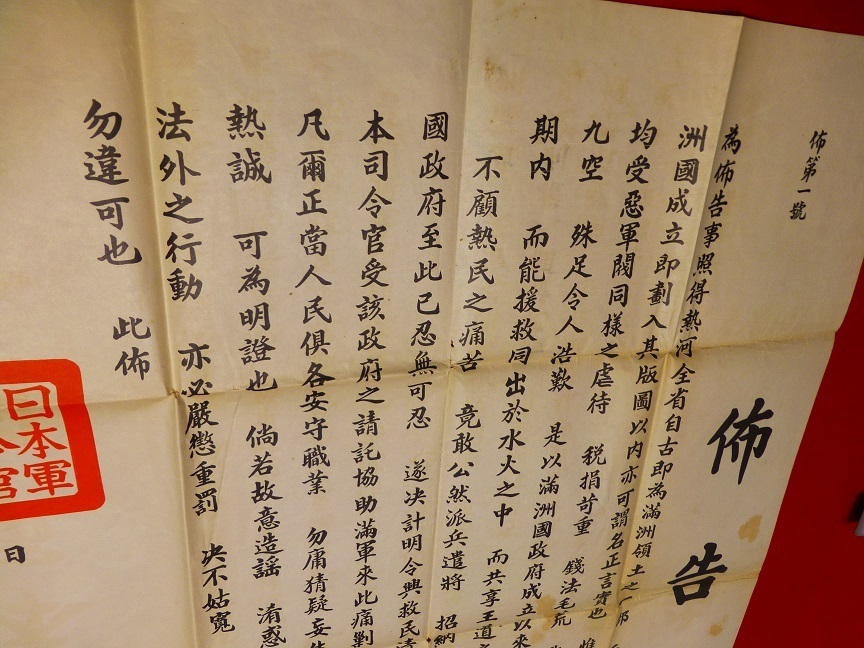 佈第一號
佈告
為佈告事照得熱河全省自古即為滿洲領土之一部
洲國成立即劃入其版圖以內亦可謂名正言實也
均受惡軍閥同樣之虐待 稅捐苛重 錢法毛荒
九空 殊足令人浩歎 是以滿洲國政府成立以來
期內 而能援救同出於水火之中 而共享王道
不顧熱民之痛苦 竟敢公然派兵遣將 招納
國政府至此已忍無可忍 遂決計明令興救民
本司令官受該政府之請託協助滿軍來此痛剿
凡爾正當人民俱各安守職業 勿庸猜疑妄
熱誠 可為明證也 倘若故意造謠 淆惑
法外之行動 亦必嚴懲重罰 決不姑寬
勿違可也 此佈
日
日本軍
官